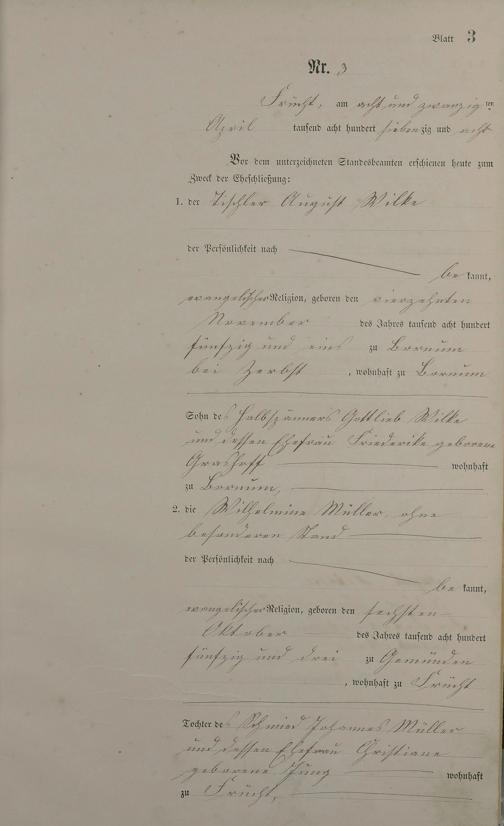 Blatt 3
Nr. 3
Frücht, am acht und zwanzigten
April tausend acht hundert siebenzig und acht
Vor dem unterzeichneten Standesbeamten erschienen heute zum
Zweck der Eheschließung:
1. der Tischler August Wilke
der Persönlichkeit nach
bekannt,
evangelischer Religion, geboren den vierzehnten
November des Jahres tausend acht hundert
fünfzig und eins zu Bornum
bei Zerbst, wohnhaft zu Bornum
Sohn des Halbspänners Gottlieb Wilke
und dessen Ehefrau Friederike geborene
Grashoff wohnhaft
zu Bornum,
2. die Wilhelmine Müller, ohne
besonderen Stand
der Persönlichkeit nach
bekannt,
evangelischer Religion, geboren den sechsten
Oktober des Jahres tausend acht hundert
fünfzig und drei zu Gemünden
, wohnhaft zu Frücht
Tochter des Schmied Johannes Müller
und dessen Ehefrau Christiane
geborene Jung wohnhaft
zu Frücht,